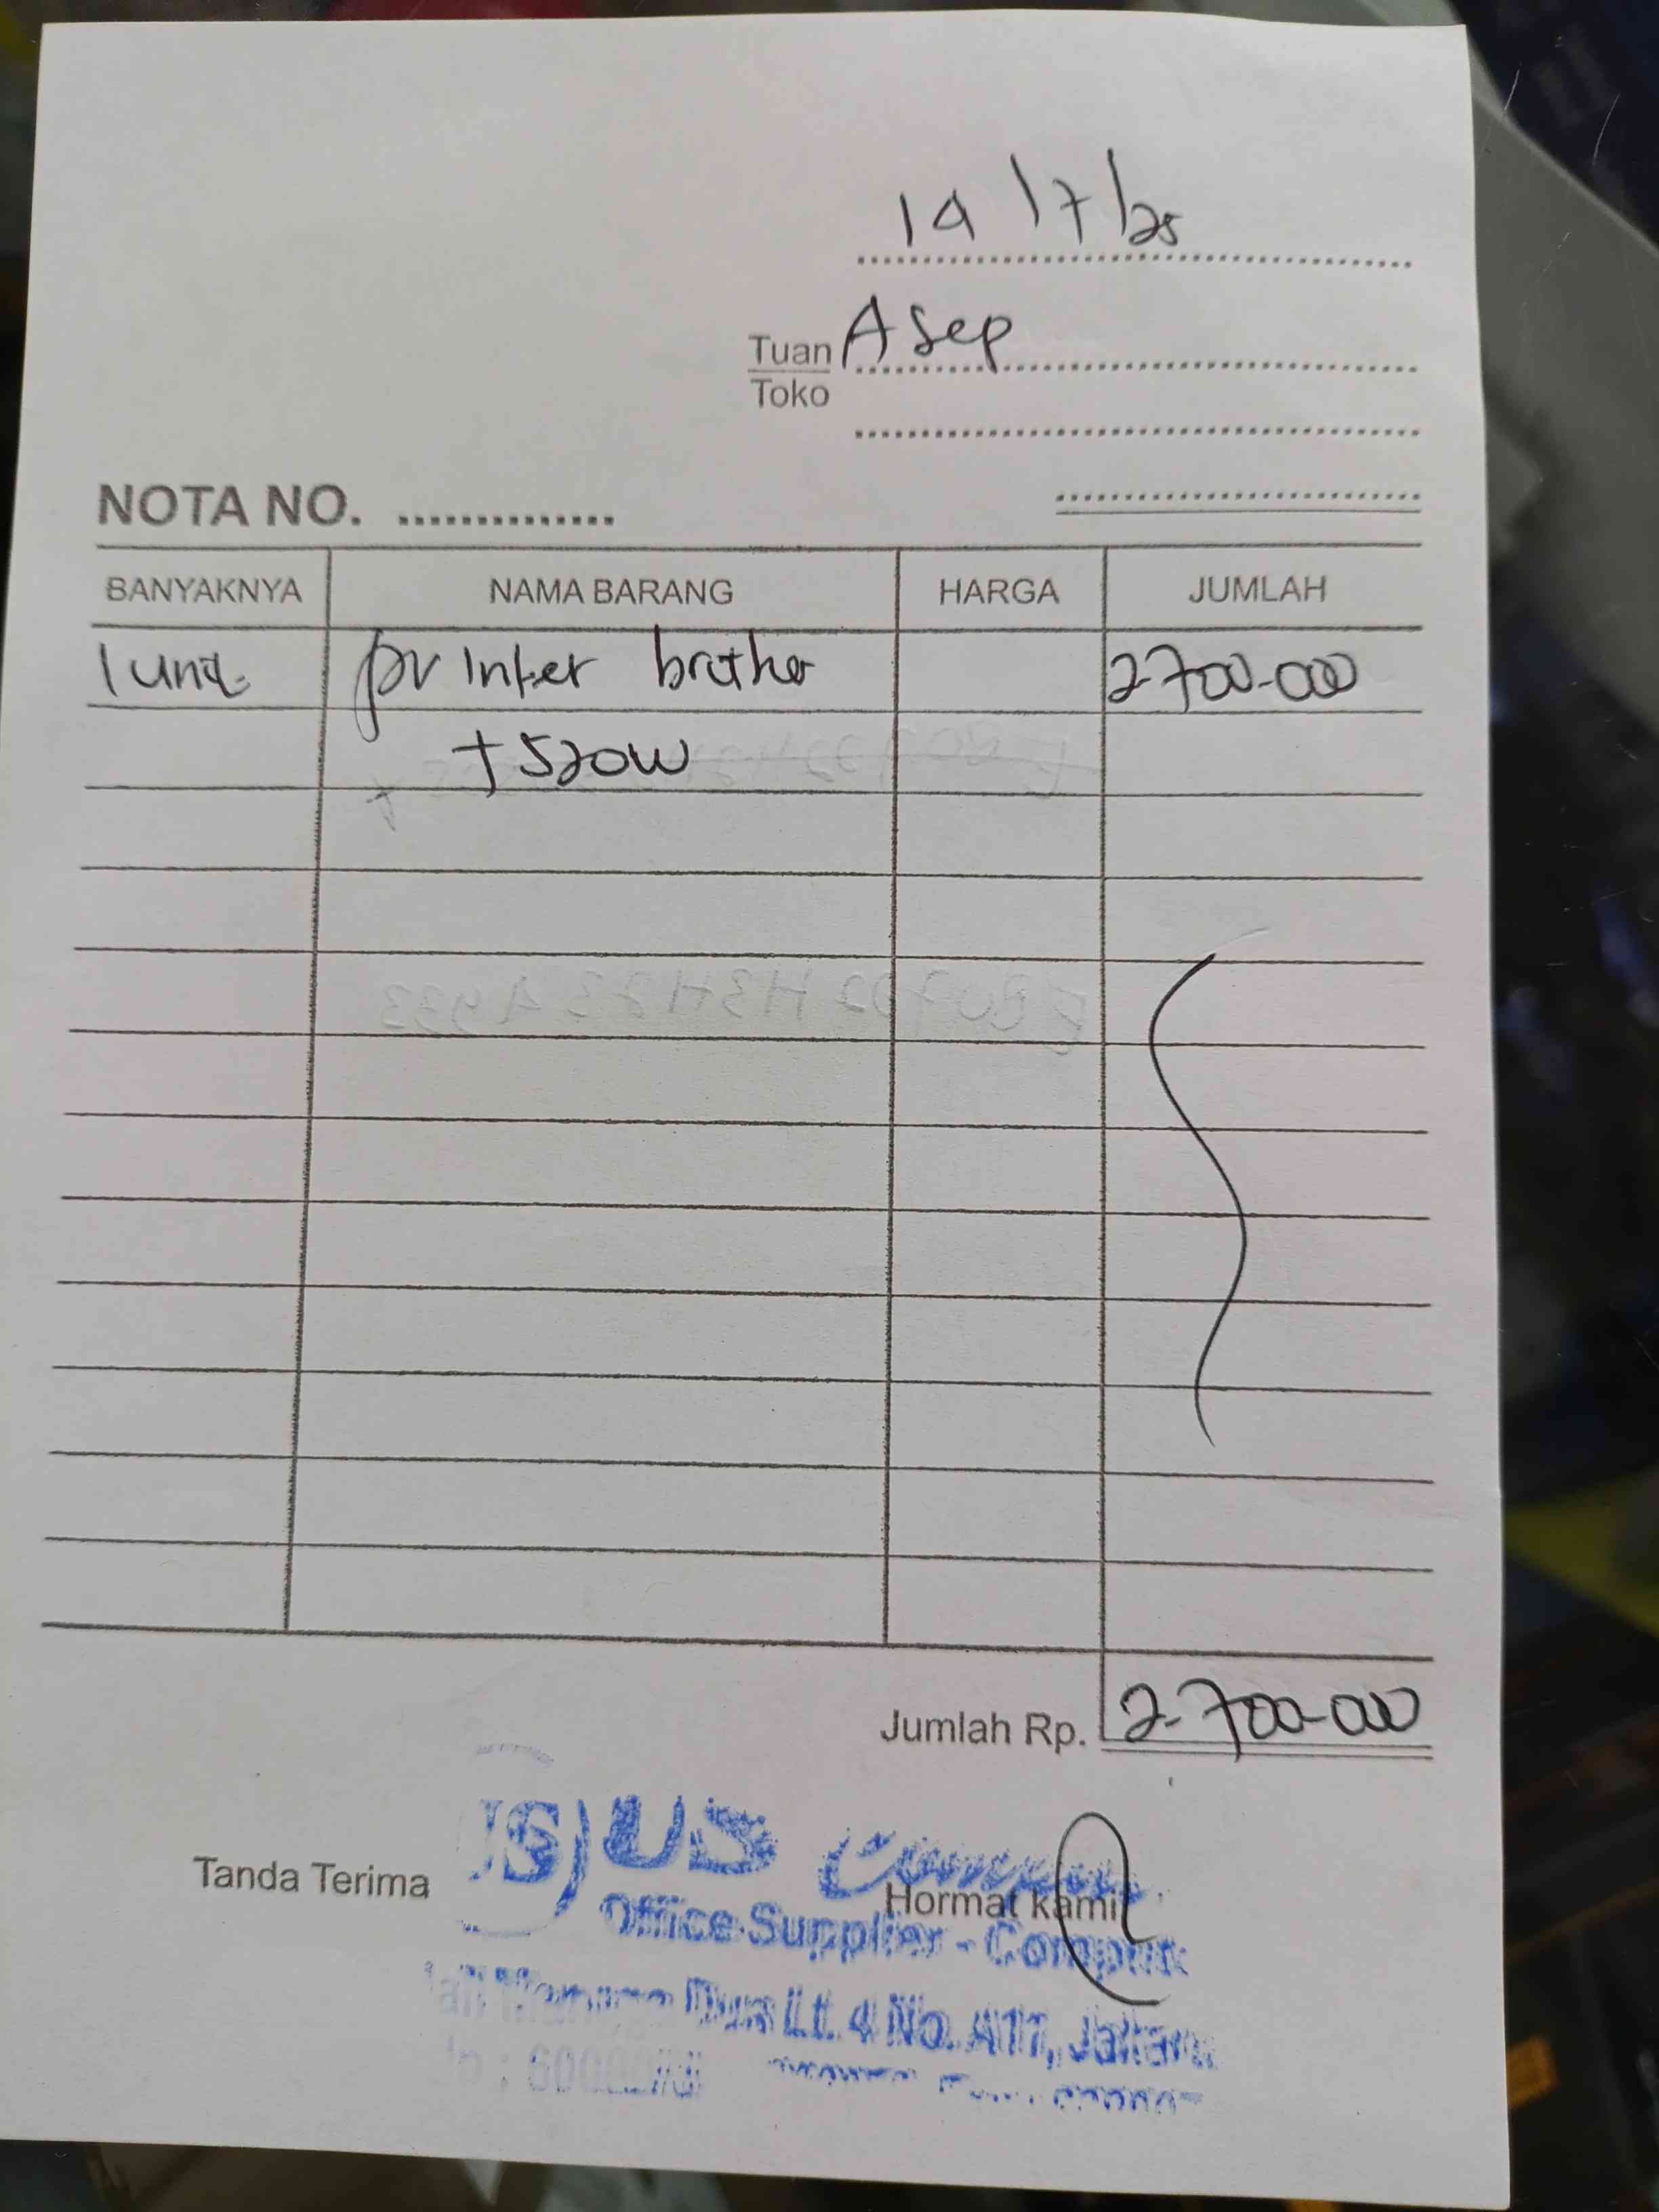 14/7/25
Tuan Asep
Toko
NOTA NO. ..............
BANYAKNYA NAMA BARANG HARGA JUMLAH
1 unit printer brother 2-700-000
T520W
Jumlah Rp. 2-700-000
Tanda Terima
Hormat kami
US Comp
Office Supplier - Comput
Dua Lt. 4 No. A11, Jakar